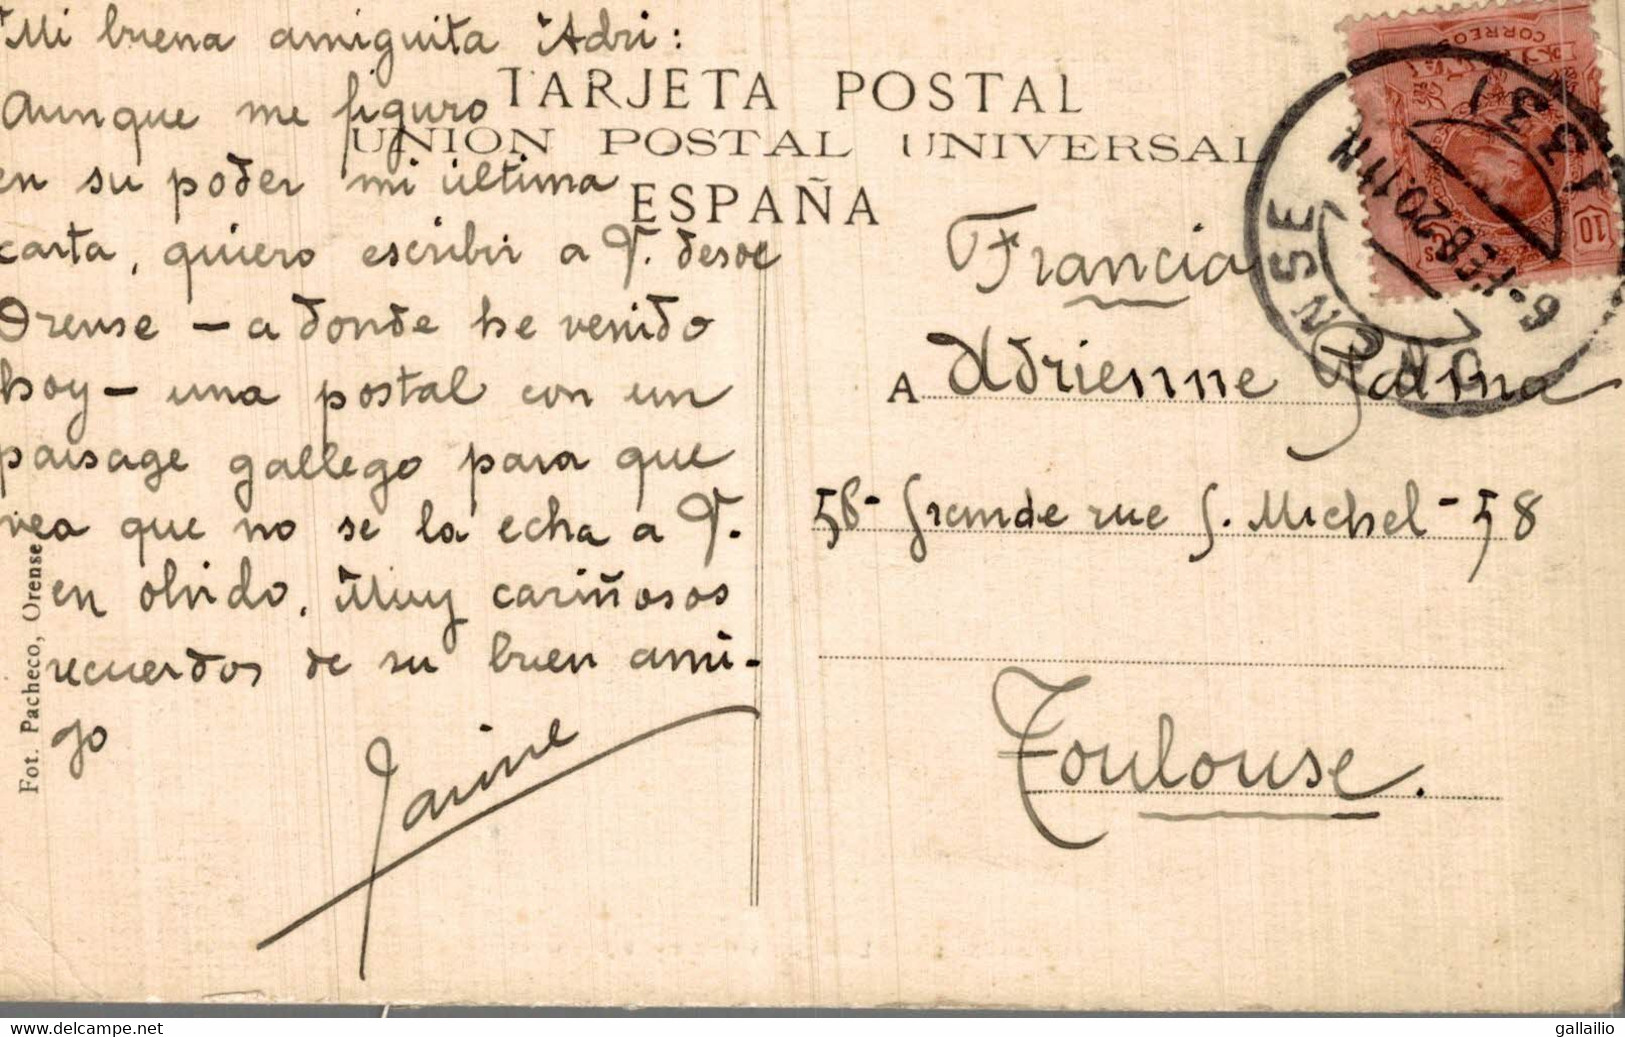 Mi buena amiguita Adri:
Aunque me figuro
en su poder mi última
carta, quiero escribir a V. desde
Orense - a donde he venido
hoy - una postal con un
paisage gallego para que
vea que no se la echa a V.
en olvido. Muy cariñosos
recuerdos de su buen ami-
go
Jaime
Fot. Pacheco, Orense
TARJETA POSTAL
UNION POSTAL UNIVERSAL
ESPAÑA
Francia
A Adrienne
58 - Grande rue S. Michel - 58
Toulouse.
CORREOS
10
6 - FEB 20. 11 M
gallailio